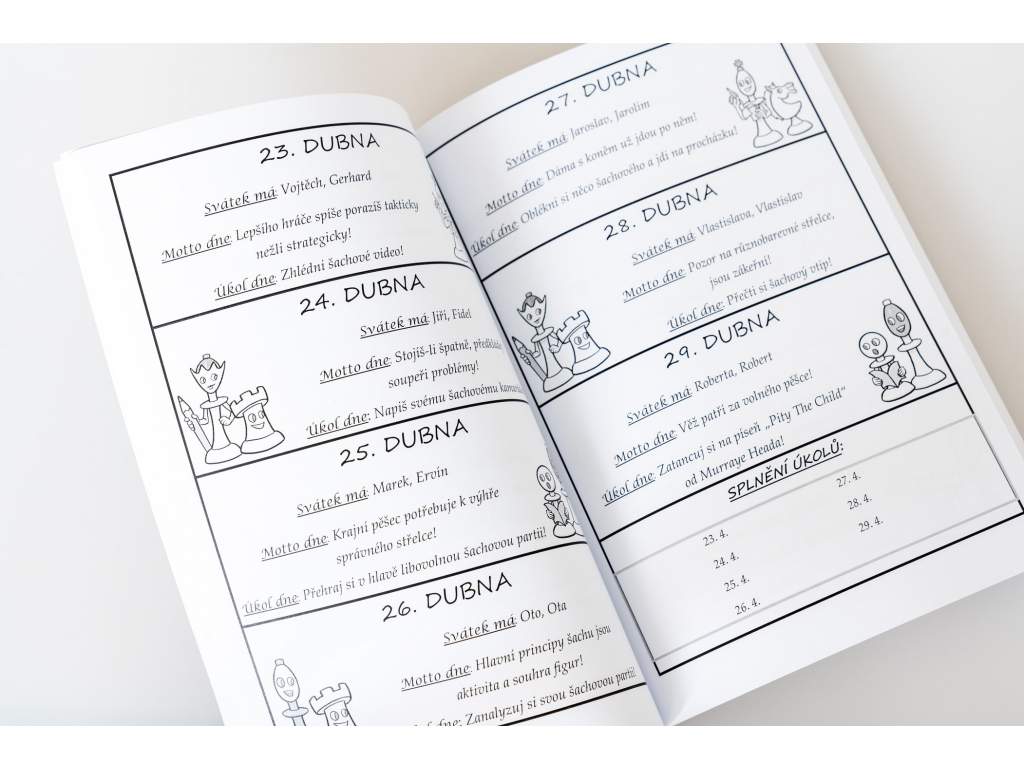 23. DUBNA
Svátek má: Vojtěch, Gerhard
Motto dne: Lepšího hráče spíše porazíš takticky
nežli strategicky!
Úkol dne: Zhlédni šachové video!
24. DUBNA
Svátek má: Jiří, Fidel
Motto dne: Stojíš-li špatně, předkládej
soupeři problémy!
Úkol dne: Napiš svému šachovému
25. DUBNA
Svátek má: Marek, Ervín
Motto dne: Krajní pěšec potřebuje k výhře
správného střelce!
Úkol dne: Přehraj si v hlavě libovolnou šachovou partii!
26. DUBNA
Svátek má: Oto, Ota
Motto dne: Hlavní principy šachu jsou
aktivita a souhra figur!
Úkol dne: Zanalyzuj si svou šachovou partii!
27. DUBNA
Svátek má: Jaroslav, Jarolím
Motto dne: Dáma s koněm už jdou po něm!
Úkol dne: Oblékni si něco šachového a jdi na procházku!
28. DUBNA
Svátek má: Vlastislava, Vlastislav
Motto dne: Pozor na různobarevné střelce,
jsou zákeřní!
Úkol dne: Přečti si šachový vtip!
29. DUBNA
Svátek má: Roberta, Robert
Motto dne: Věž patří za volného pěšce!
Úkol dne: Zatancuj si na píseň „Pity The Child"
od Murraye Heada!
SPLNĚNÍ ÚKOLŮ:
23. 4.
24. 4.
25. 4.
26. 4.
27. 4.
28. 4.
29. 4.